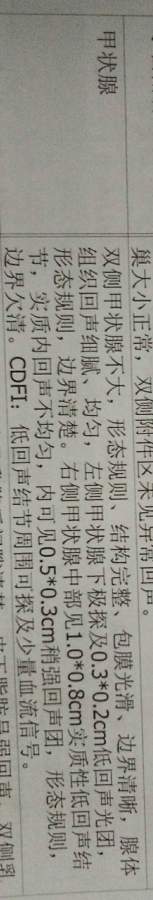 巢大小正常，双侧附件区未见异常回声。
甲状腺
双侧甲状腺不大，形态规则、结构完整、包膜光滑、边界清晰，腺体
组织回声细腻、均匀，左侧甲状腺下极探及0.3*0.2cm低回声光团，
形态规则，边界清楚。右侧甲状腺中部见1.0*0.8cm实质性低回声结
节，实质内回声不均匀，内可见0.5*0.3cm稍强回声团，形态规则，
边界欠清。CDFI：低回声结节周围可探及少量血流信号。